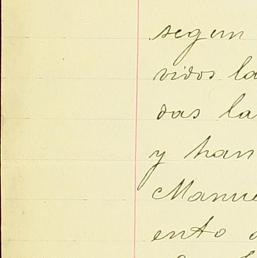 segun
vidos la
das la
y han
Manue
ento a